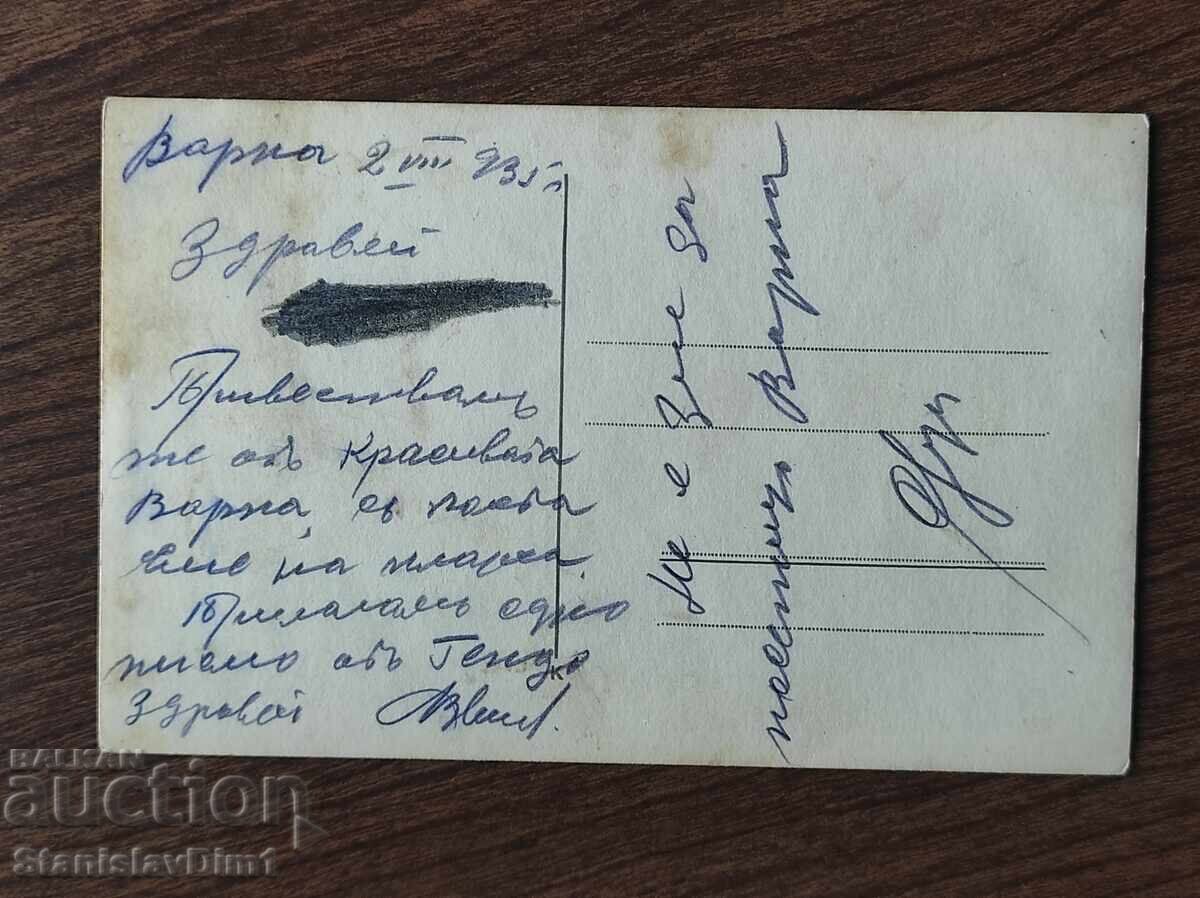 Варна 2 VIII 935 г.
Здравей
Приветствамъ
те отъ красивата
Варна, съ
на плажа
Прилагамъ едно
писмо отъ Генко
Здравей
Не е зле да
посетишъ Варна
BALKAN
auction
StanislavDim1